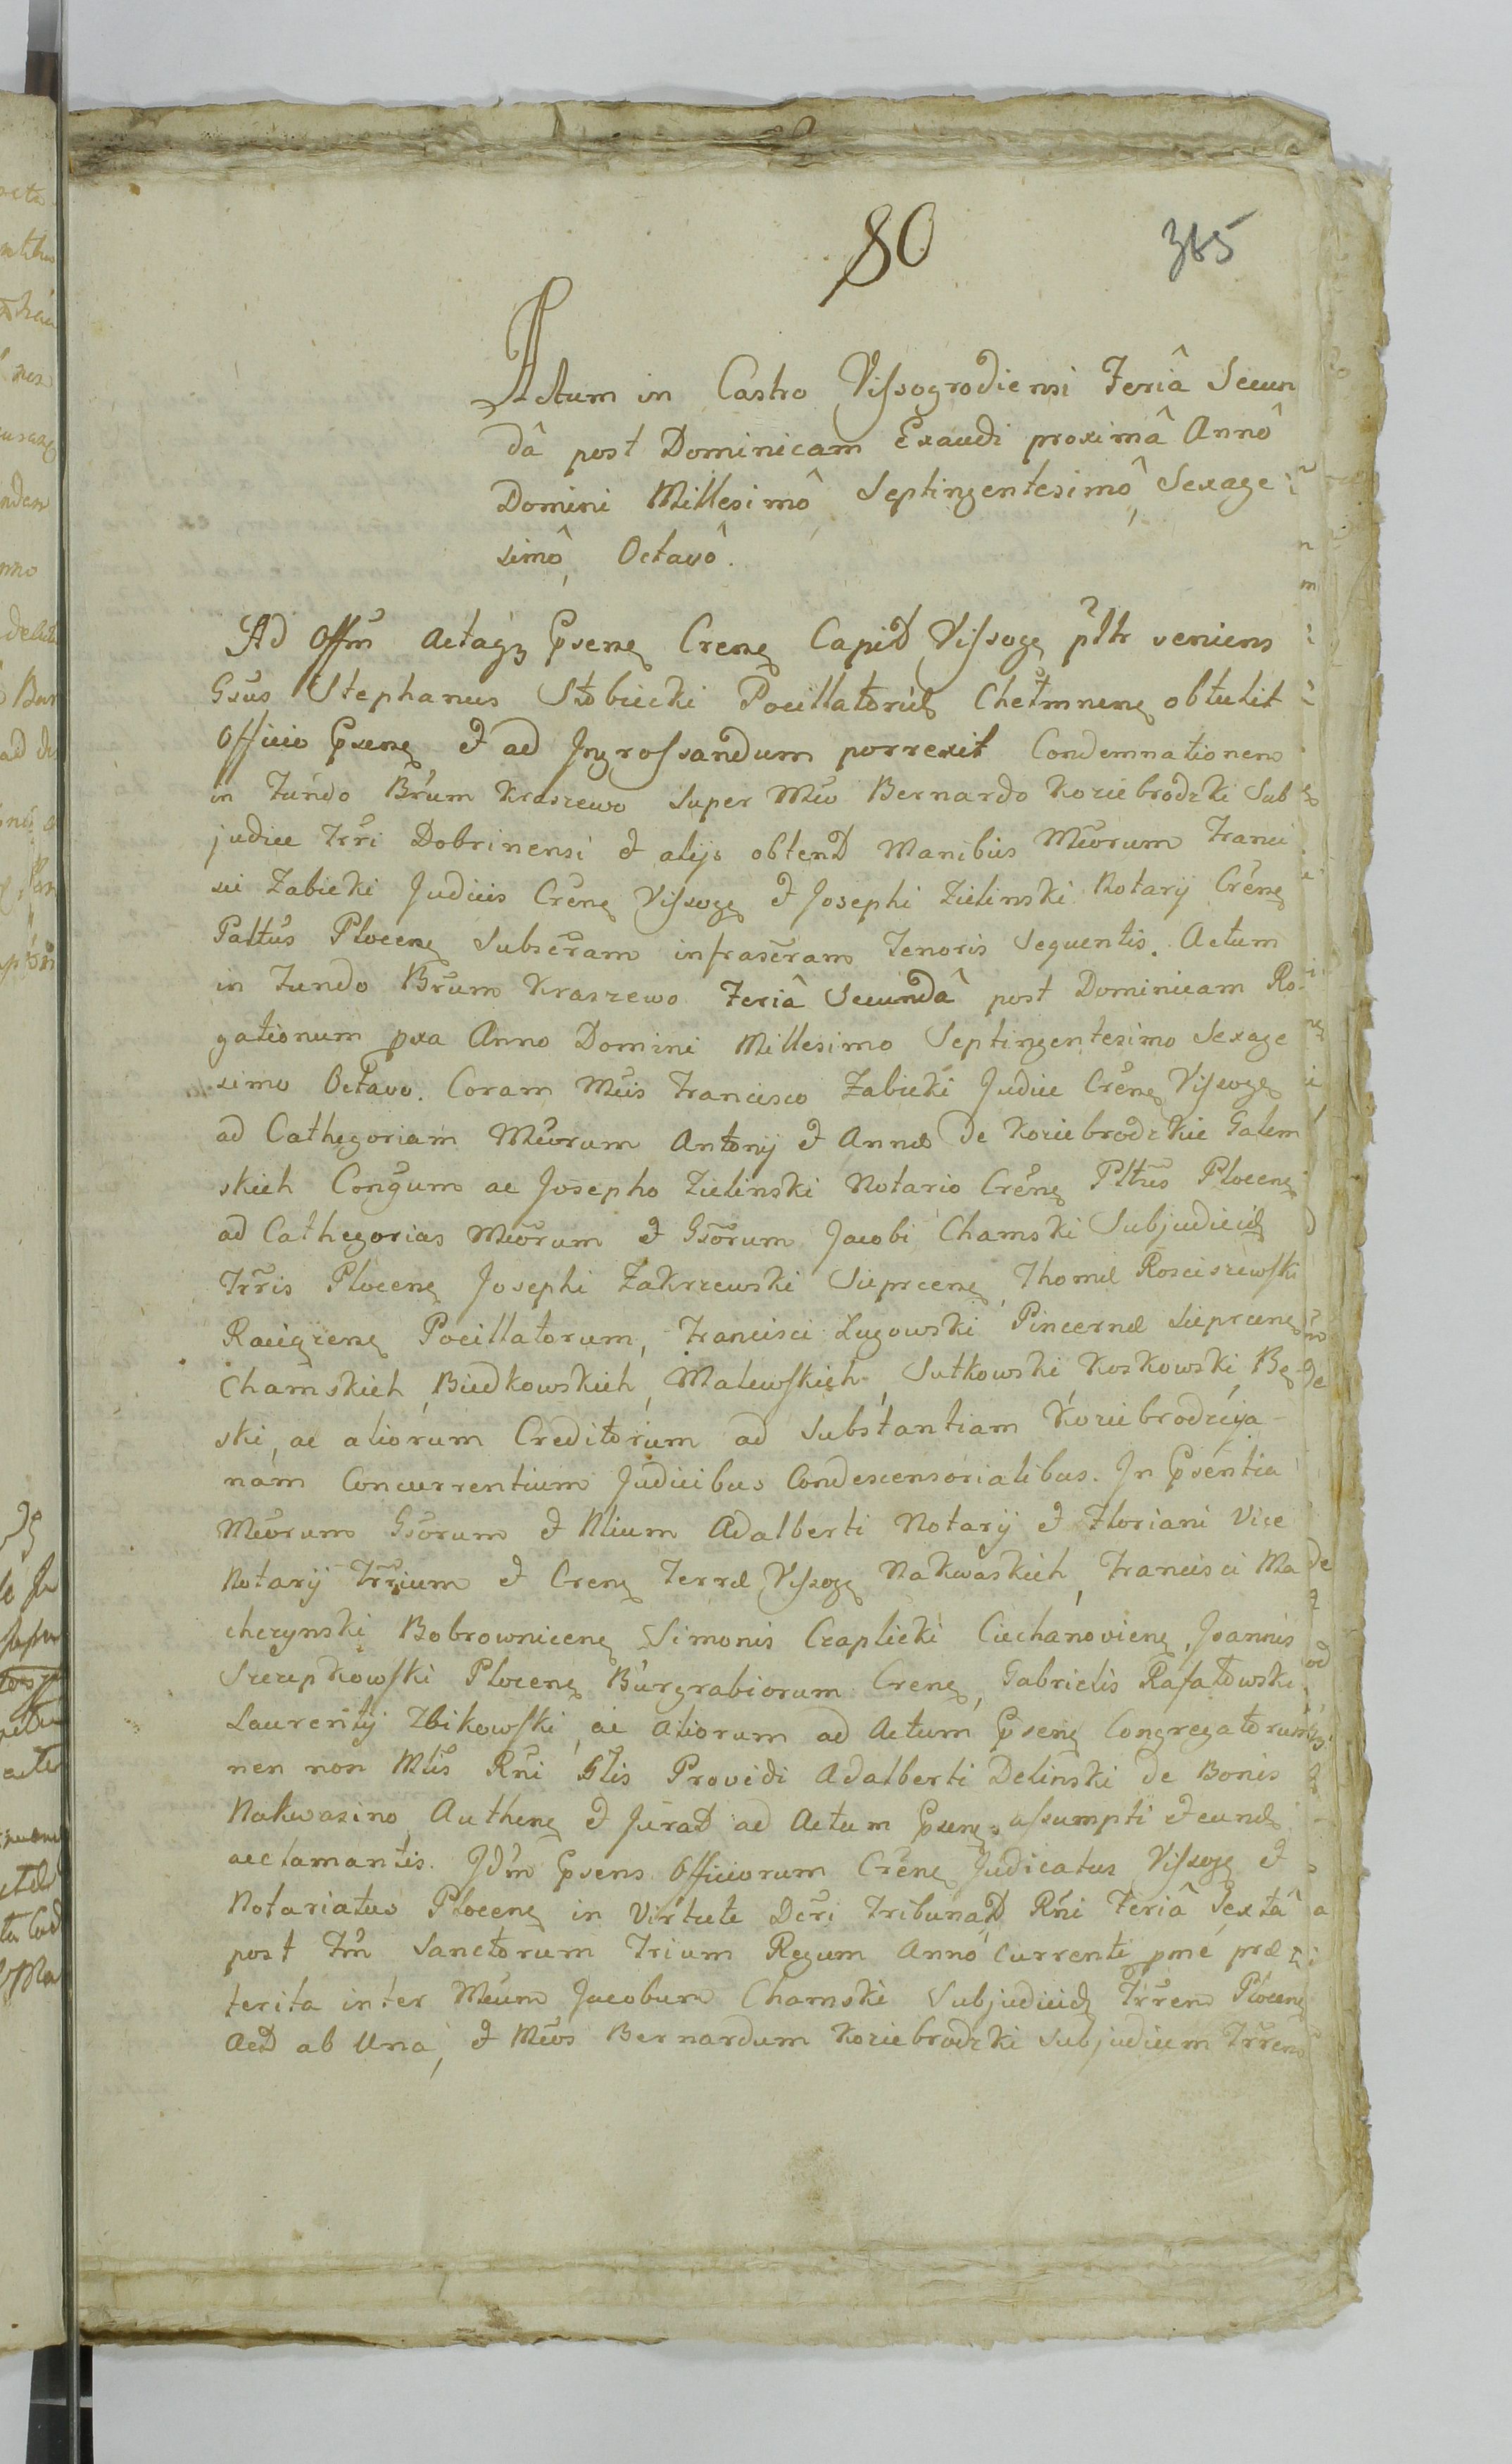 80
365
Actum in Castro Vissogrodiensi Feriâ Secun
dâ post Dominicam Exaudi proximâ Annô
Domini Millesimô Septingentesimô, Sexage
simô, Octavô.
Ad Offm Actaqz Psene Crene Capit Vissoge veniens
Gsus Stephanus Słobiecki Pocillatorid Chełmnene obtulit
Officio Psene et ad Ingrossandum porrexit Condemnationem
in Fundo Brum Kraszewo super Mco Bernardo Koziebrodzki Sub
judice Trri Dobrinensi et alijs obtent Manibus Mcorum Franci
sci Zabicki Judicis Crene Vissoge et Josephi Zielinski Notarij Crene
Paltus Plocene Subscram infrascram Tenoris Sequentis. Actum
in Fundo Brum Kraszewo Feriâ Secundâ post Dominicam Ro-
gationum pxa Anno Domini Millesimo Septingentesimo Sexage
simo Octavo. Coram Mcis Francisco Zabicki Judice Crene Vissoge
ad Cathegoriam Mcorum Antonij et Annæ de Koziebrodzkie Galem
skich Congum ac Josepho Zielinski Notario Crene Pltus Plocene
ad Cathegorias Mcorum et Gsorum Jacobi Chamski Subjudicid
Trris Plocene Josephi Zakrzewski Sieprcene, Thomæ Rosciszewski
Raciązene Pocillatorum, Francisci Lugowski Pincernæ Sieprcene
Chamskich, Biedkowskich, Malewskich, Sutkowski Koskowski Bę-
ski, ac aliorum Creditorum ad Substantiam Koziebrodzcija-
nam Concurrentium Judicibus Condescensorialibus. In Psentia
Mcorum Gsorum et Nlium Adalberti Notarij et Floriani Vice
Notarij Trrium et Crene Terræ Vissoge Nakwaskich, Francisci Ma
chczynski Bobrownicene Simonis Czaplicki Ciechanoviene, Joannis
Szczepkowski Plocene Burgrabiorum Crene, Gabrielis Rafałowski
Laurentij Zbikowski, ac Aliorum ad Actum Psene Congregatorum
nen non Mlis Rni Glis Providi Adalberti Delinski de Bonis
Nakwasino Authene et Jurat ad Actum Psene assumpti et eund
acclamantis. Idm Psens Officiorum Crene Judicatus Vissoge et
Notariatus Plocene in Virtute Dcri Tribunat Rni Feriâ Sextâ
post Fm Sanctorum Trium Regum Anno Currenti pme præ
terita inter Mcum Jacobum Chamski Subjudicid Trrem Plocene
Act ab Una, et Mcos Bernardum Koziebrodzki Subjudicem Trrem